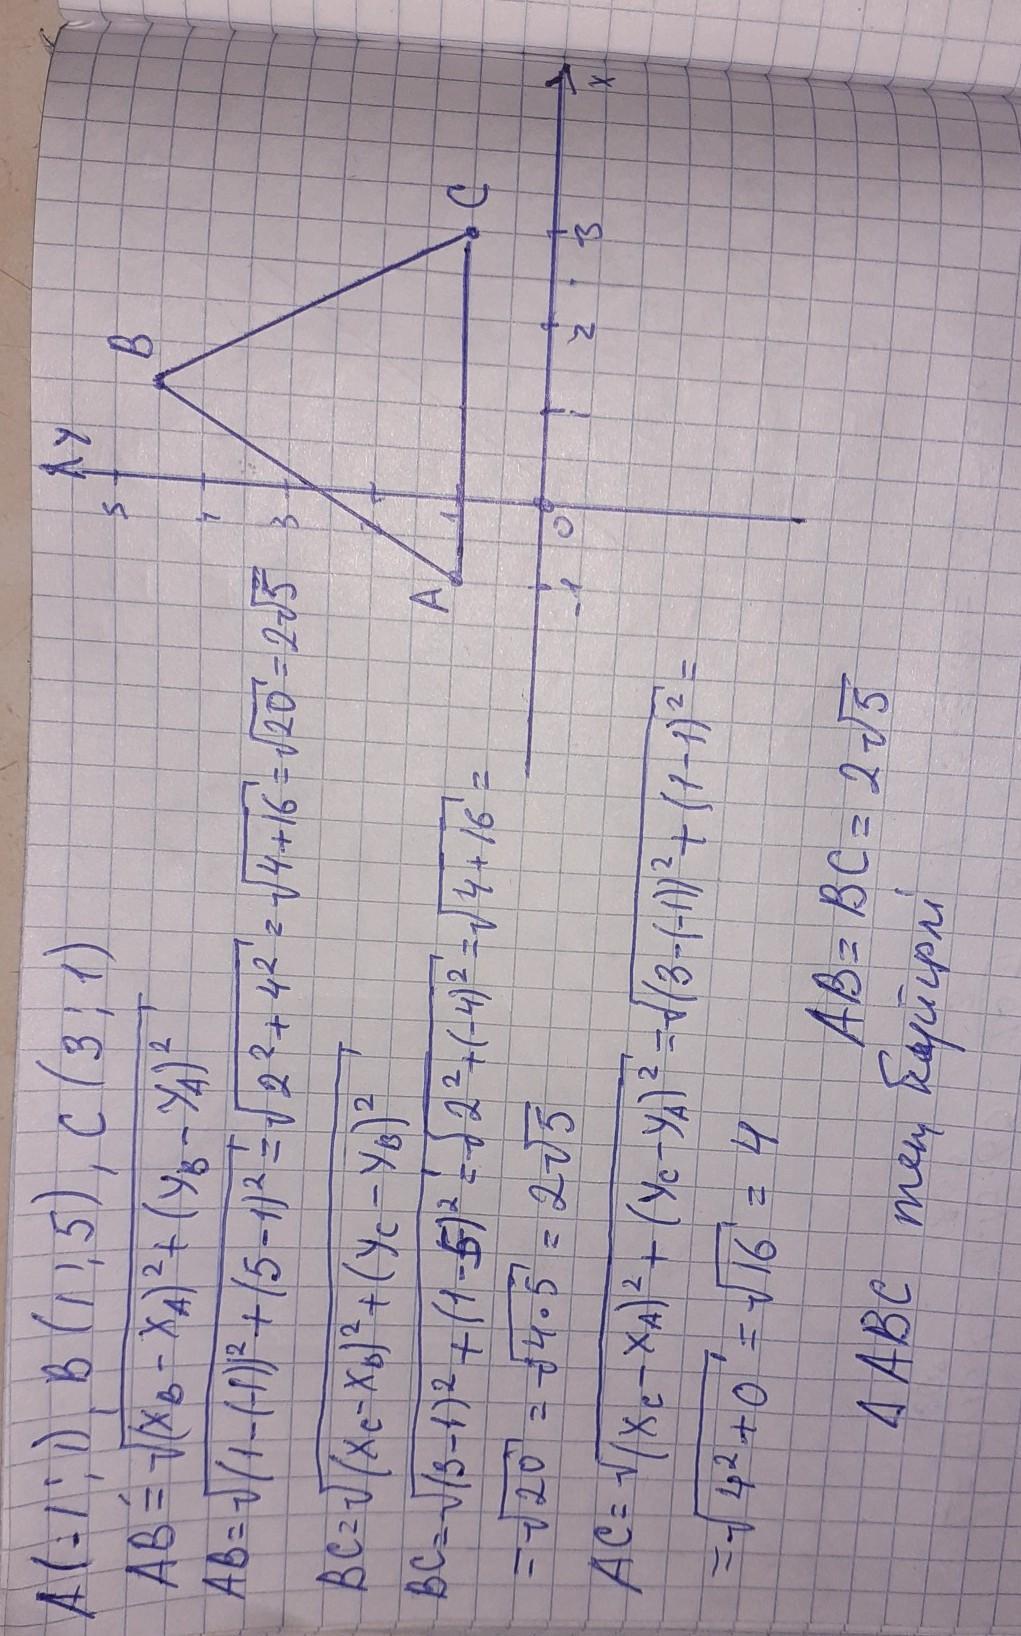 A(-1;1), B(1;5), C(3;1)
AB=√(x_B-x_A)²+(y_B-y_A)²
AB=√(1-(-1))²+(5-1)²=√2²+4²=√4+16=√20=2√5
BC=√(x_C-x_B)²+(y_C-y_B)²
BC=√(3-1)²+(1-5)²=√2²+(-4)²=√4+16=
=√20=√4·5=2√5
AC=√(x_C-x_A)²+(y_C-y_A)²=√(3-(-1))²+(1-1)²=
=√4²+0=√16=4
AB=BC=2√5
Δ ABC тең бүйірлі
y
5
4
3
1
B
A
C
-1
0
1
2
3
x